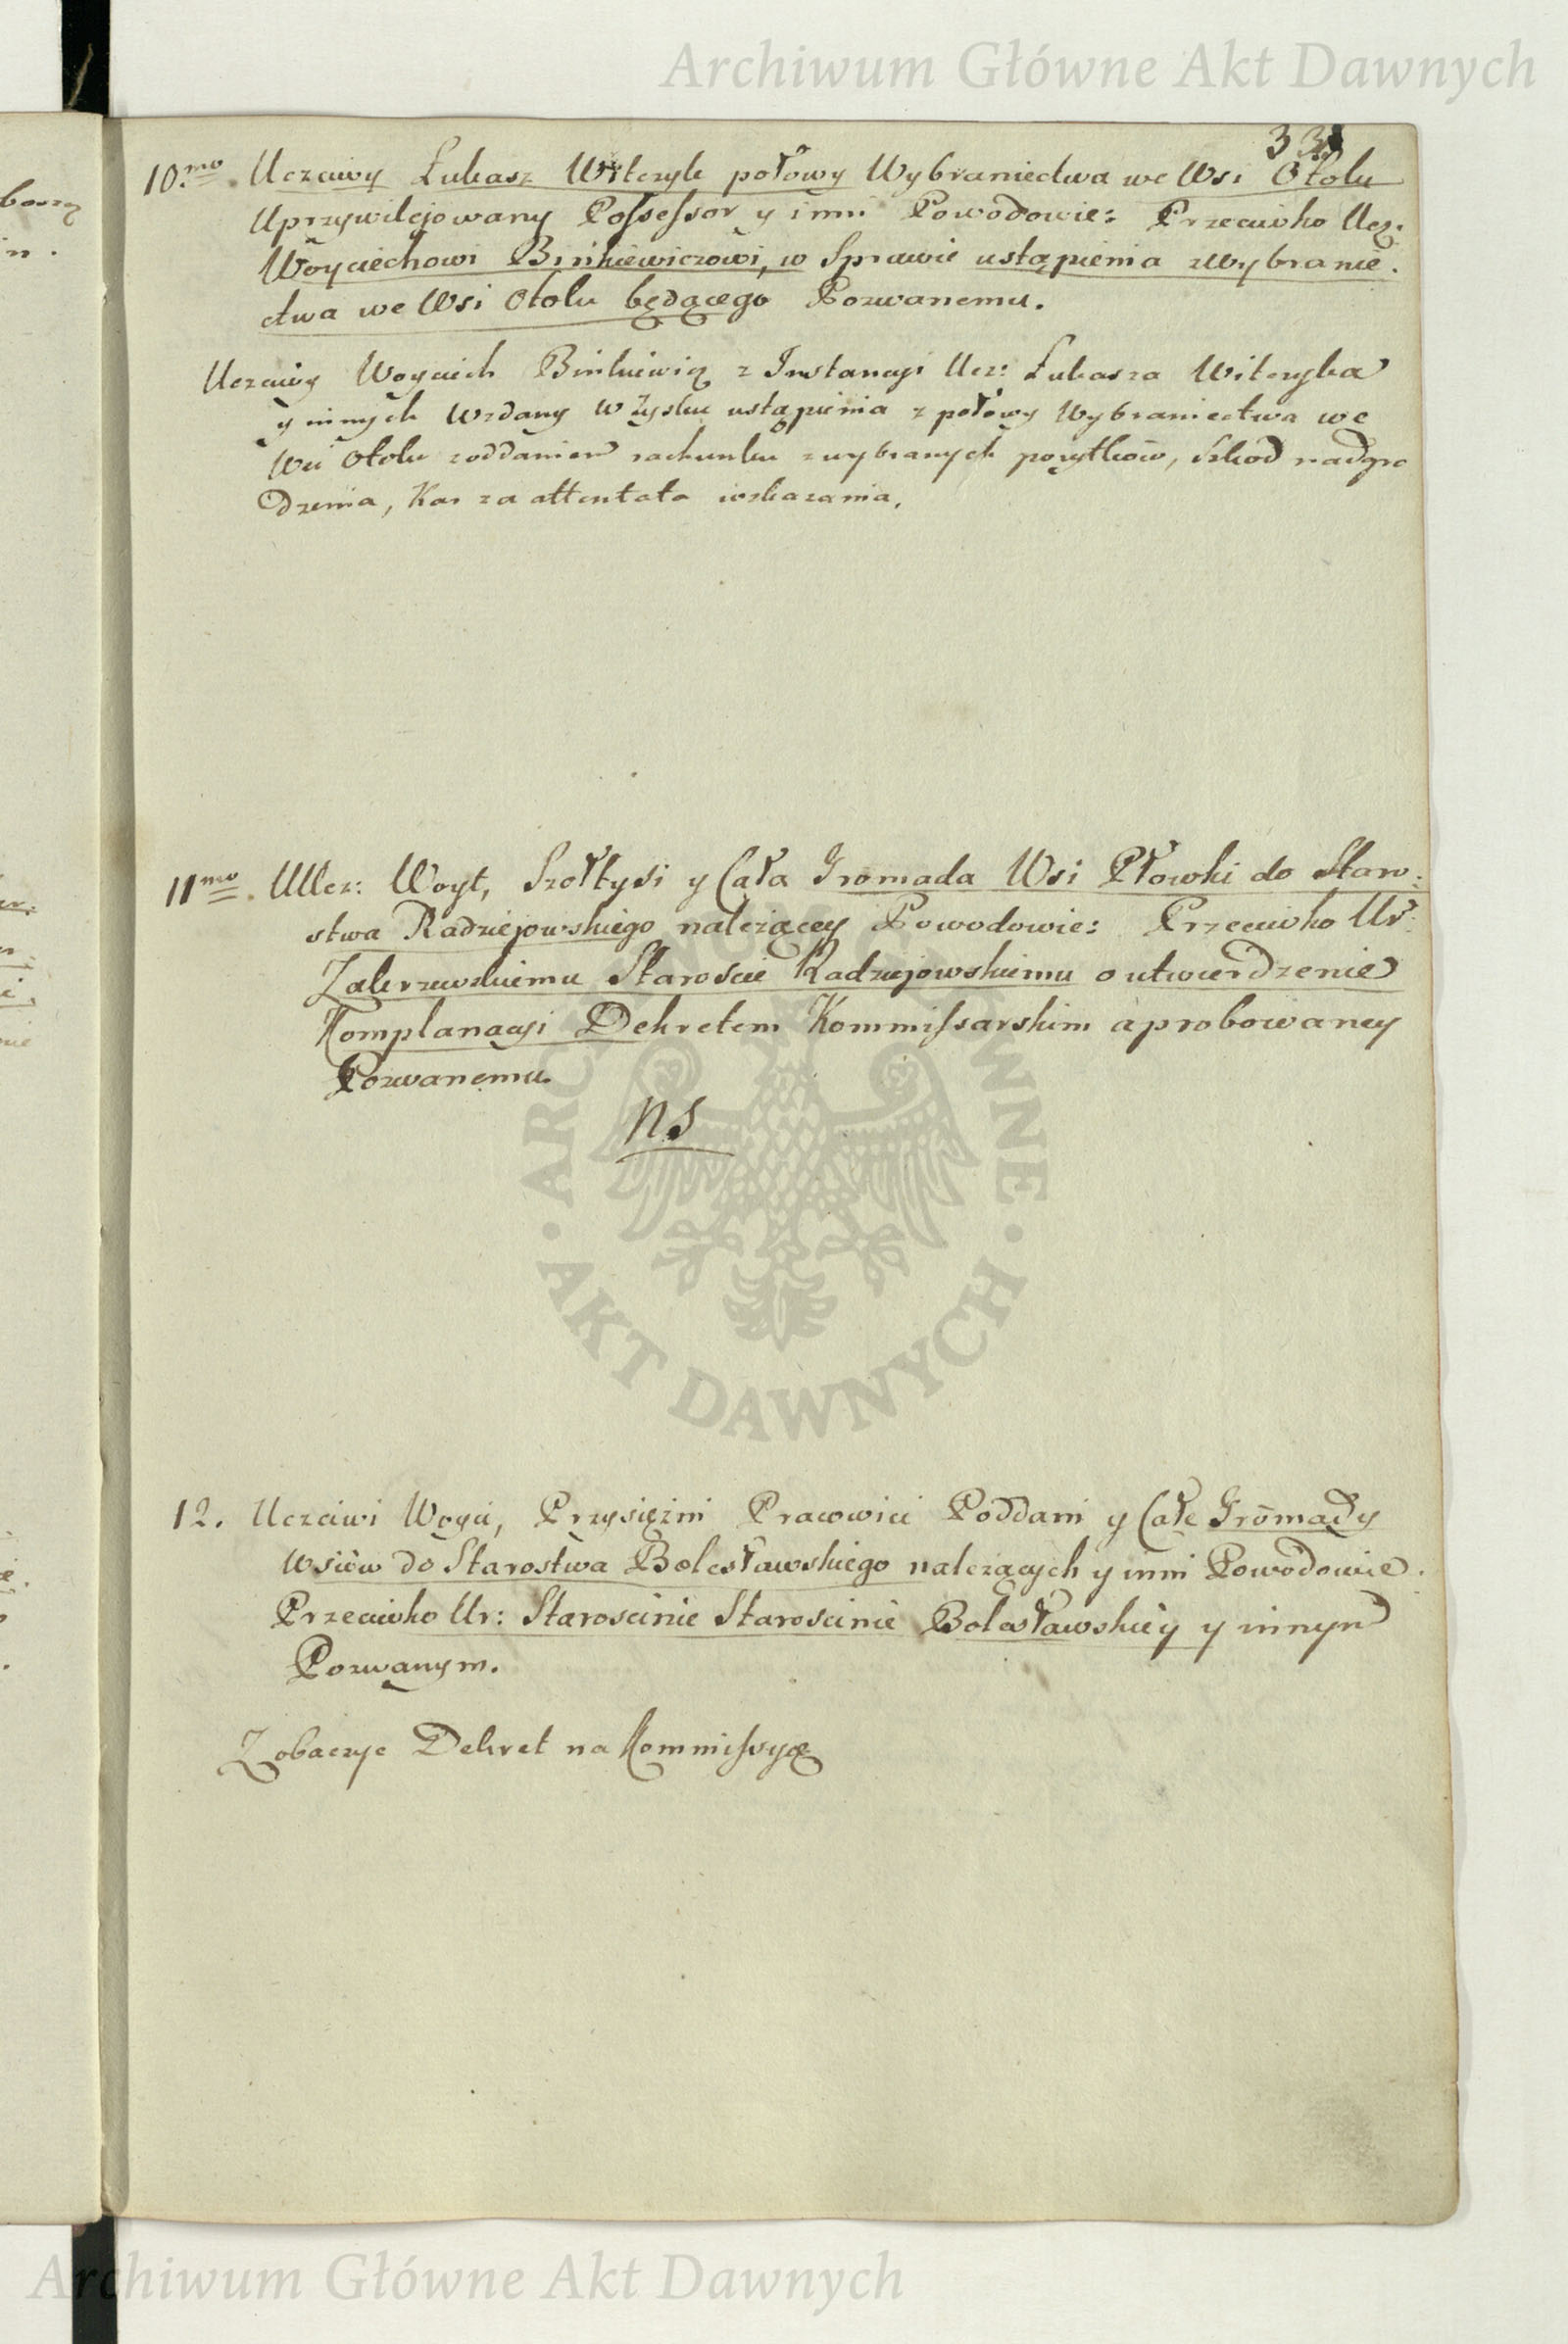 Archiwum Główne Akt Dawnych
33
10.mo Uczciwy Łukasz Witczyk połowy Wybraniectwa we Wsi Otolu
Uprzywilejowany Possessor y inni Powodowie: Przeciwko Ucz:
Woyciechowi Binkiewiczowi, w Sprawie ustąpienia z Wybranie.
ctwa we Wsi Otolu będącego Pozwanemu.
Uczciwy Woyciech Binkiewicz z Instancyi Ucz: Łukasza Witczyka
y innych Wzdany w Zysku ustąpienia z połowy Wybraniectwa we
Wsi Otolu z oddaniem rachunku z wybranych pożytków, Szkod nadgro
dzenia, Kar za attentata wskazania.
11mo. UUcz: Woyt, Szołtysi y Cała Gromada Wsi Płowki do Staro:
stwa Radziejowskiego należącey Powodowie: Przeciwko Ur:
Zakrzewskiemu Staroscie Radziejowskiemu o utwierdzenie
Komplanacyi Dekretem Kommissarskim aprobowaney
Pozwanemu.
ns
12. Uczciwi Woyci, Przysiężni Pracowici Poddani y Całe Gromady
Wsiów do Starostwa Bolesławskiego należących y inni Powodowie.
Przeciwko Ur: Starościnie Starościnie Bolesławskiey y innym
Pozwanym.
Zobaczyc Dekret na Kommissyą
ARCHIWUM GŁÓWNE
AKT DAWNYCH
Archiwum Główne Akt Dawnych